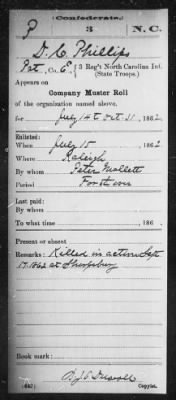 Confederate.
P 3 N.C.
D. C. Phillips
Pvt, Co. E, 3 Reg't North Carolina Inf.
(State Troops.)
Appears on
Company Muster Roll
of the organization named above,
for July 14 to Oct 31, 1862
Enlisted:
When July 15, 1862
Where Raleigh
By whom Peter Mallett
Period For the war
Last paid:
By whom
To what time , 186 .
Present or absent
Remarks: Killed in action Sept
17, 1862 at Sharpsburg
Book mark:
(642)
Copyist.